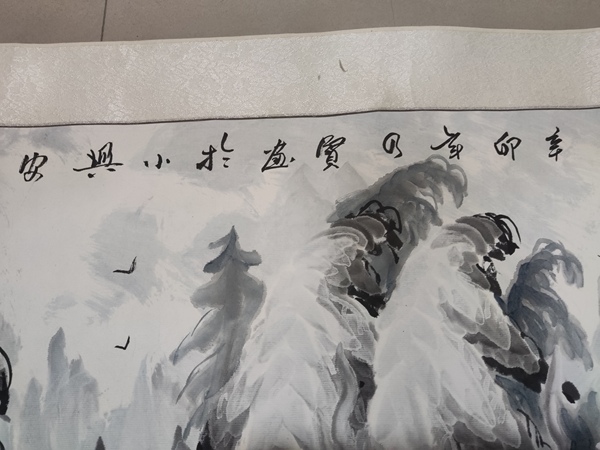 辛卯年乃畫於小興安